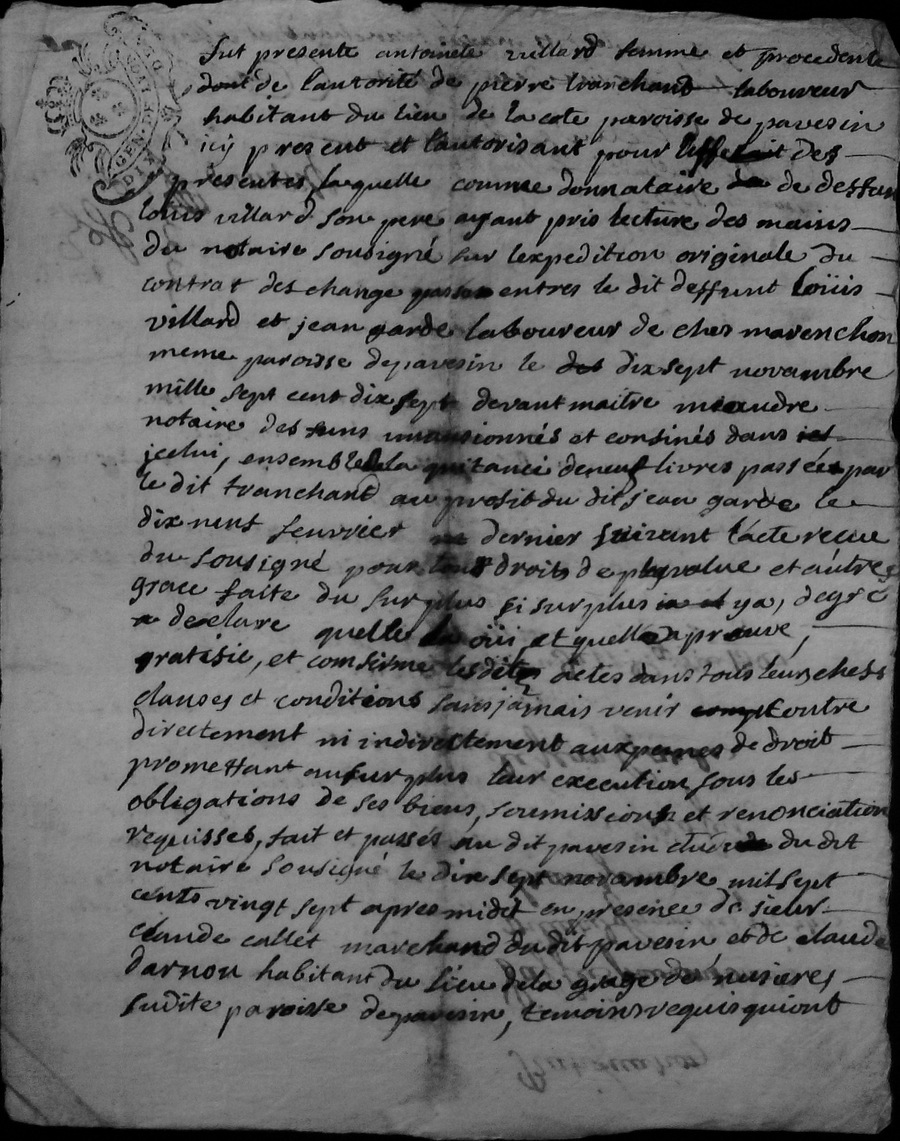 fut presente antoinete villard femme et procedente
dont de l'autorité de pierre tranchand laboureur
habitant du lieu de la cote paroisse de pavesin
icy present et l'autorisant pour l'effet des
presentes, laquelle comme donnataire de deffunt
louis villard son pere ayant pris lecture des mains
du notaire sousigné sur l'expedition originale du
contrat deschange passé entres le dit deffunt loüis
villard et jean garde laboureur de ches marenchon
meme paroisse de pavesin le dix sept novambre
mille sept cent dix sept devant maitre
notaire des funs mansionnés et confinés dans
jcelui, ensemble de la quitance de neuf livres passée par
le dit tranchand au profit du dit jean garde le
dix neuf feuvrier dernier suivant l'acte recue
du sousigné pour tous droits de plusvalue et autres
grace faite du surplus si surplus il y a, de gré
a declaré quelle la oüi, et quelle apreuve,
gratifie, et comfirme lesdits actes dans tous leurs chefs
clauses et conditions sans jamais venir contre
directement ni indirectement aux peines de droit
promettant au surplus leur execution sous les
obligations de ses biens, soumissions et renonciation
requisses, fait et passés au dit pavesin etude du dit
notaire sousigné le dix sept novambre mil sept
cents vingt sept apres midit en presence de sieur
claude callet marchand du dit pavesin, et de claude
darnou habitant du lieu de la grage de
sudite paroisse de pavesin, temoins requis qui ont